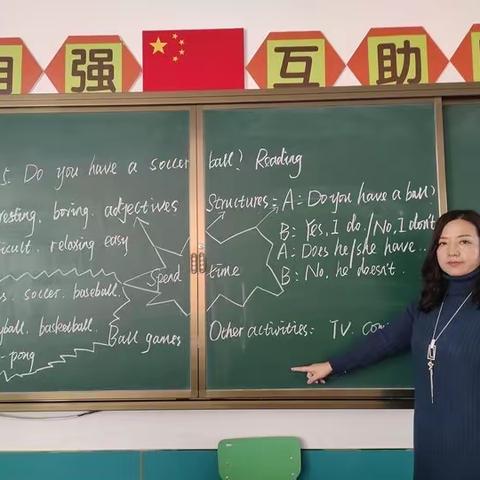 自 强 互 助
5. Do you have a soccer ball? Reading
boring. adjectives
relaxing easy
soccer. baseball.
basketball.
pong
Ball games
Spend time
Structures: A: Do you have a ball?
B: Yes, I do./No, I don't
A: Does he/she have...
B: No, he doesn't.
Other activities: TV.